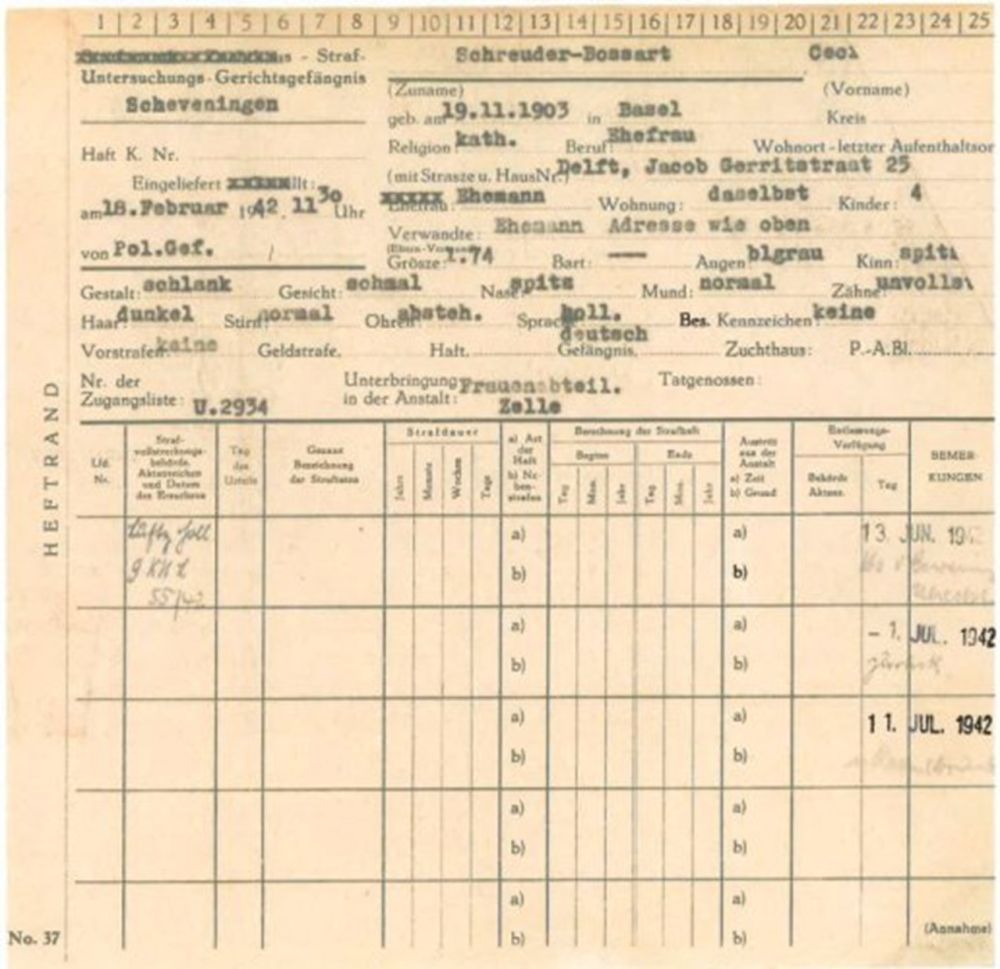 1 2 3 4 5 6 7 8 9 10 11 12 13 14 15 16 17 18 19 20 21 22 23 24 25
- Straf-
Untersuchungs-Gerichtsgefängnis
Scheveningen
Schreuder-Bossart
(Zuname) (Vorname)
geb. am 19.11.1903 in Basel Kreis
Religion: kath. Beruf: Ehefrau Wohnort-letzter Aufenthaltsor
Haft K. Nr.
(mit Strasze u. HausNr.) Delft, Jacob Gerritstraat 25
Eingeliefert
am 18.Februar 1942. 11 30 Uhr
Ehemann Wohnung: daselbst Kinder: 4
Verwandte: Ehemann Adresse wie oben
von Pol.Gef. /
Grösze: 1.74 Bart: — Augen: blgrau Kinn:
Gestalt: schlank Gesicht: schmal Nase: spitz Mund: normal Zähne: unvolls
Haar: dunkel Stirn: normal Ohren: absteh. Sprache: holl. Bes. Kennzeichen: keine
deutsch
Vorstrafen: keine Geldstrafe. Haft. Gefängnis. Zuchthaus: P.-A.Bl.
Nr. der
Zugangsliste: U.2934
Unterbringung
in der Anstalt: Frauenabteil.
Zelle
Tatgenossen:
HEFTRAND
Lfd.
Nr.
Straf-
vollstreckungs-
behörde.
Aktenzeichen
und Datum
des Ersuchens
Tag
des
Urteils
Genaue
Bezeichnung
der Straftaten
Strafdauer
Jahre Monate Wochen Tage
a) Art
der
Haft
b) Ne-
ben-
strafen
Berechnung der Strafhaft
Beginn Ende
Tag Mon. Jahr Tag Mon. Jahr
Austritt
aus der
Anstalt
a) Zeit
b) Grund
Entlassungs-
Verfügung
Behörde
Aktenz.
Tag
BEMER-
KUNGEN
a) a) 13 JUN. 19
b) b)
55/42
a) a) - 1. JUL. 1942
b) b) zurück
a) a) 11. JUL. 1942
b) b)
a) a)
b) b)
a) a)
b) b)
(Annahme)
No. 37